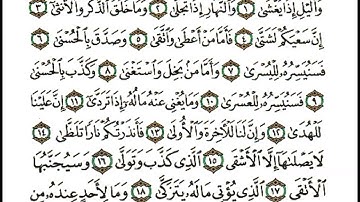 وَٱلَّيۡلِ إِذَا يَغۡشَىٰ ١ وَٱلنَّهَارِ إِذَا تَجَلَّىٰ ٢ وَمَا خَلَقَ ٱلذَّكَرَ وَٱلۡأُنثَىٰٓ ٣
إِنَّ سَعۡيَكُمۡ لَشَتَّىٰ ٤ فَأَمَّا مَنۡ أَعۡطَىٰ وَٱتَّقَىٰ ٥ وَصَدَّقَ بِٱلۡحُسۡنَىٰ ٦
فَسَنُيَسِّرُهُۥ لِلۡيُسۡرَىٰ ٧ وَأَمَّا مَنۢ بَخِلَ وَٱسۡتَغۡنَىٰ ٨ وَكَذَّبَ بِٱلۡحُسۡنَىٰ
٩ فَسَنُيَسِّرُهُۥ لِلۡعُسۡرَىٰ ١٠ وَمَا يُغۡنِي عَنۡهُ مَالُهُۥٓ إِذَا تَرَدَّىٰٓ ١١ إِنَّ عَلَيۡنَا
لَلۡهُدَىٰ ١٢ وَإِنَّ لَنَا لَلۡأٓخِرَةَ وَٱلۡأُولَىٰ ١٣ فَأَنذَرۡتُكُمۡ نَارٗا تَلَظَّىٰ ١٤
لَا يَصۡلَىٰهَآ إِلَّا ٱلۡأَشۡقَى ١٥ ٱلَّذِي كَذَّبَ وَتَوَلَّىٰ ١٦ وَسَيُجَنَّبُهَا
ٱلۡأَتۡقَى ١٧ ٱلَّذِي يُؤۡتِي مَالَهُۥ يَتَزَكَّىٰ ١٨ وَمَا لِأَحَدٍ عِندَهُۥ مِن